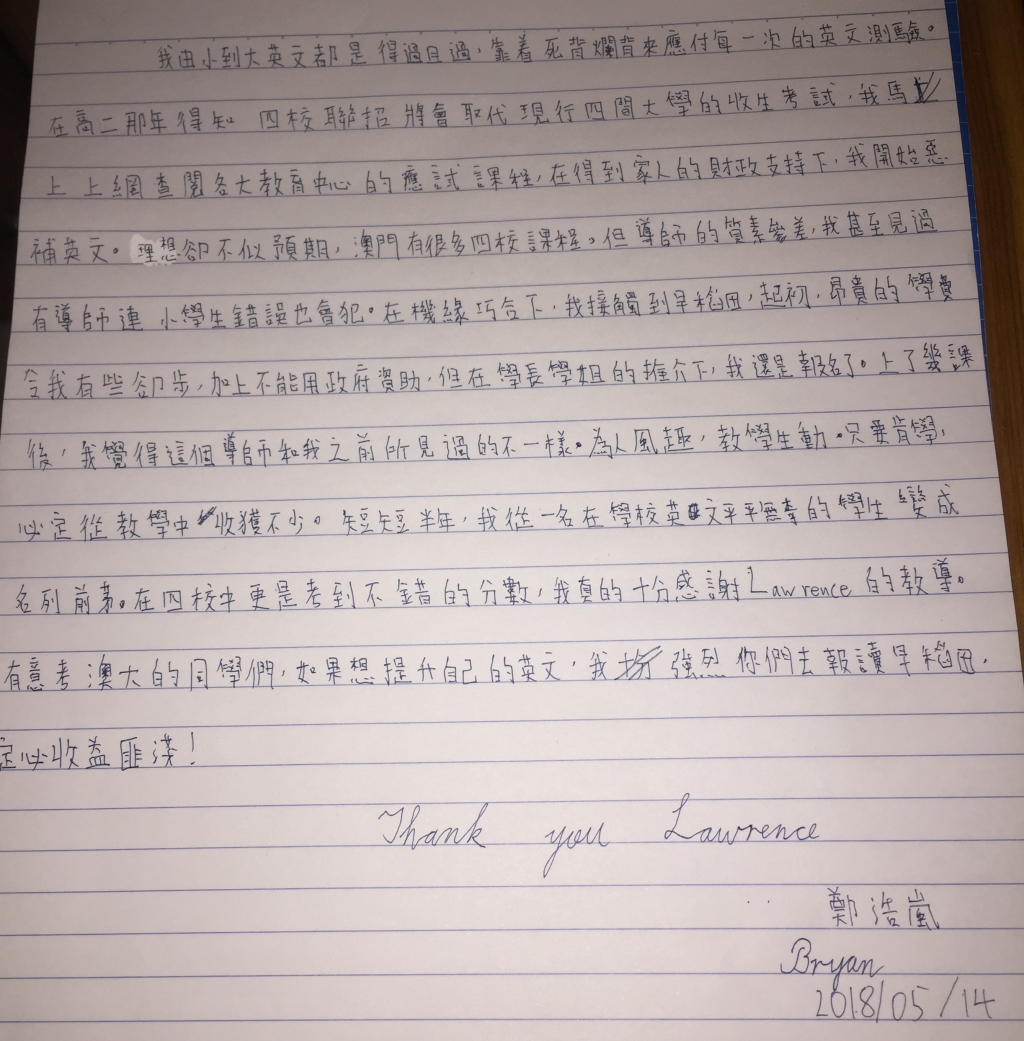 我由小到大英文都是得過且過，靠着死背爛背來應付每一次的英文測驗。
在高二那年得知 四校聯招 將會取代現行四間大學的收生考試，我馬
上上網查閱各大教育中心的應試課程，在得到家人的財政支持下，我開始惡
補英文。理想卻不似預期，澳門有很多四校課程。但導師的質素參差，我甚至見過
有導師連小學生錯誤也會犯。在機緣巧合下，我接觸到早稻田，起初，昂貴的學費
令我有些卻步，加上不能用政府資助，但在學長學姐的推介下，我還是報名了。上了幾課
後，我覺得這個導師和我之前所見過的不一樣。為人風趣，教學生動。只要肯學，
必定從教學中收獲不少。短短半年，我從一名在學校英文平平無奇的學生變成
名列前茅。在四校中更是考到不錯的分數，我真的十分感謝Lawrence的教導。
有意考澳大的同學們，如果想提升自己的英文，我強烈你們去報讀早稻田，
定必收益匪淺！
Thank you Lawrence
鄭浩嵐
Bryan
2018/05/14